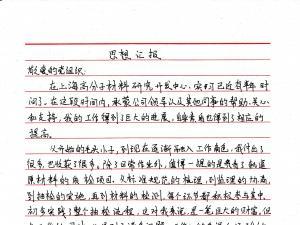 思想汇报
敬爱的党组织:
在上海高分子材料研究开发中心,实习已近有半年时
间了。在这段时间内,承蒙公司领导以及其他同事的帮助、关心
和支持,我的工作得到了巨大的进展,自身素质也得到了相应的
提高。
从开始的毛头小子,到现在逐渐进入工作角色,我付出了
很多,也收获了很多。除了日常作业外,值得一提的是负责了
原材料的质检项目。从标准规范的梳理,到监理的协商,
到抽检的实施,再到材料的检测,每个环节都积极参与其中,
初步实践了整个抽检流程。这对我来说,是一笔巨大的财富,但